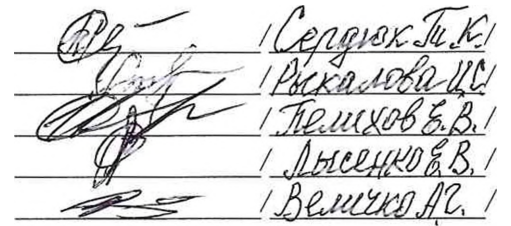 / Сердюк Т.К. /
/ Рыкалова И.С. /
/ Пелихов Е.В. /
/ Лысенко Е.В. /
/ Величко А.Г. /